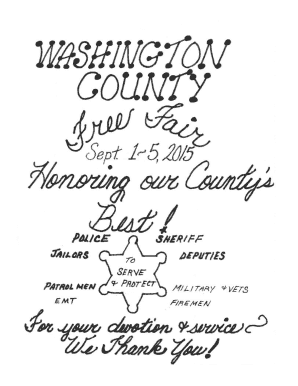 WASHINGTON
COUNTY
Free Fair
Sept. 1-5, 2015
Honoring our County's
Best!
POLICE SHERIFF
JAILORS DEPUTIES
TO
SERVE
& PROTECT
PATROLMEN MILITARY & VETS
EMT FIREMEN
For your devotion & service
We Thank You!